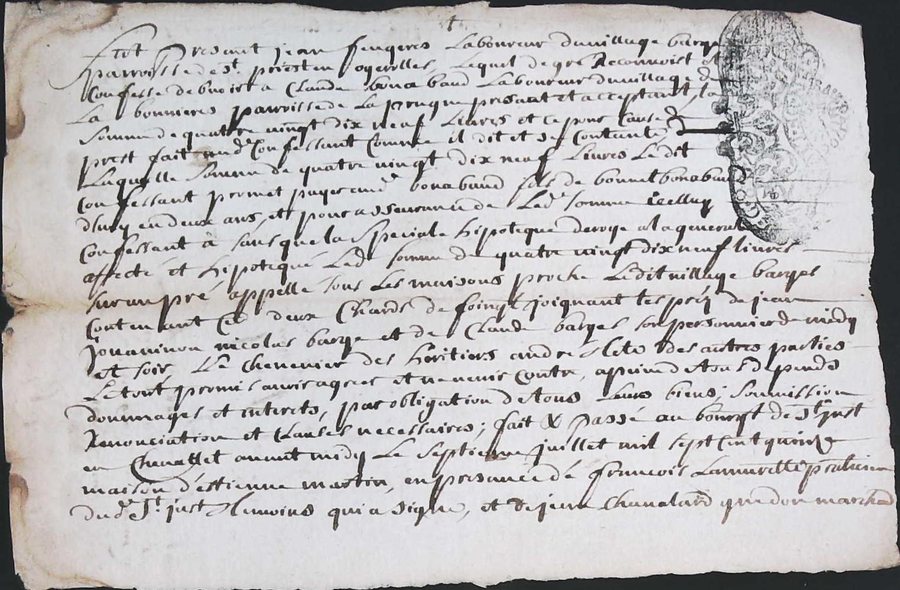 fut Presant jean feugeres Laboureur du village barges
parroisse de St priest en Lequel de gre Reconnoist et
Confesse debvoir a Claude bonabaud Laboureur du village de
La bonnieres parroisse de La presant et acceptant La
somme de quatre vingt dix neuf Livres et ce pour Cause de
prest fait aud Confessant Comme il dit et se Contante
Laquelle somme de quatre vingt dix neuf Livres Ledit
Confessant promet payer aud bonabaud fils de bonnet bonabaud
d'huy en deux ans, et pour asseurance de Led somme icelluy
Confessant à sans que La speciale hipoteque deroge a la generale
affecté et hipotequé Led somme de quatre vingt dix neuf livres
sur un pré appellé sous Les maisons proche Ledit village barges
Contenant deux Chards de foingt joignant Les préz de jean
nicolas barge et de Claude barges son personnier de midy
et soir, Le Chenevier des heritiers andre des autres parties
Le tout promis avoir agreé et ne venir Contre, a peine de tous depends
dommages et interets, par obligation de tous Leurs biens; soumission
Renonciation et Clauses necessaires; fait & passé au bourgt de St just
en Chevallet avant midy Le septieme juillet mil sept Cent quinze
maison d'estienne martin, en presance de francois Lamurette praticien
dud St just temoins qui a signé, et de jean Chavalard marchand